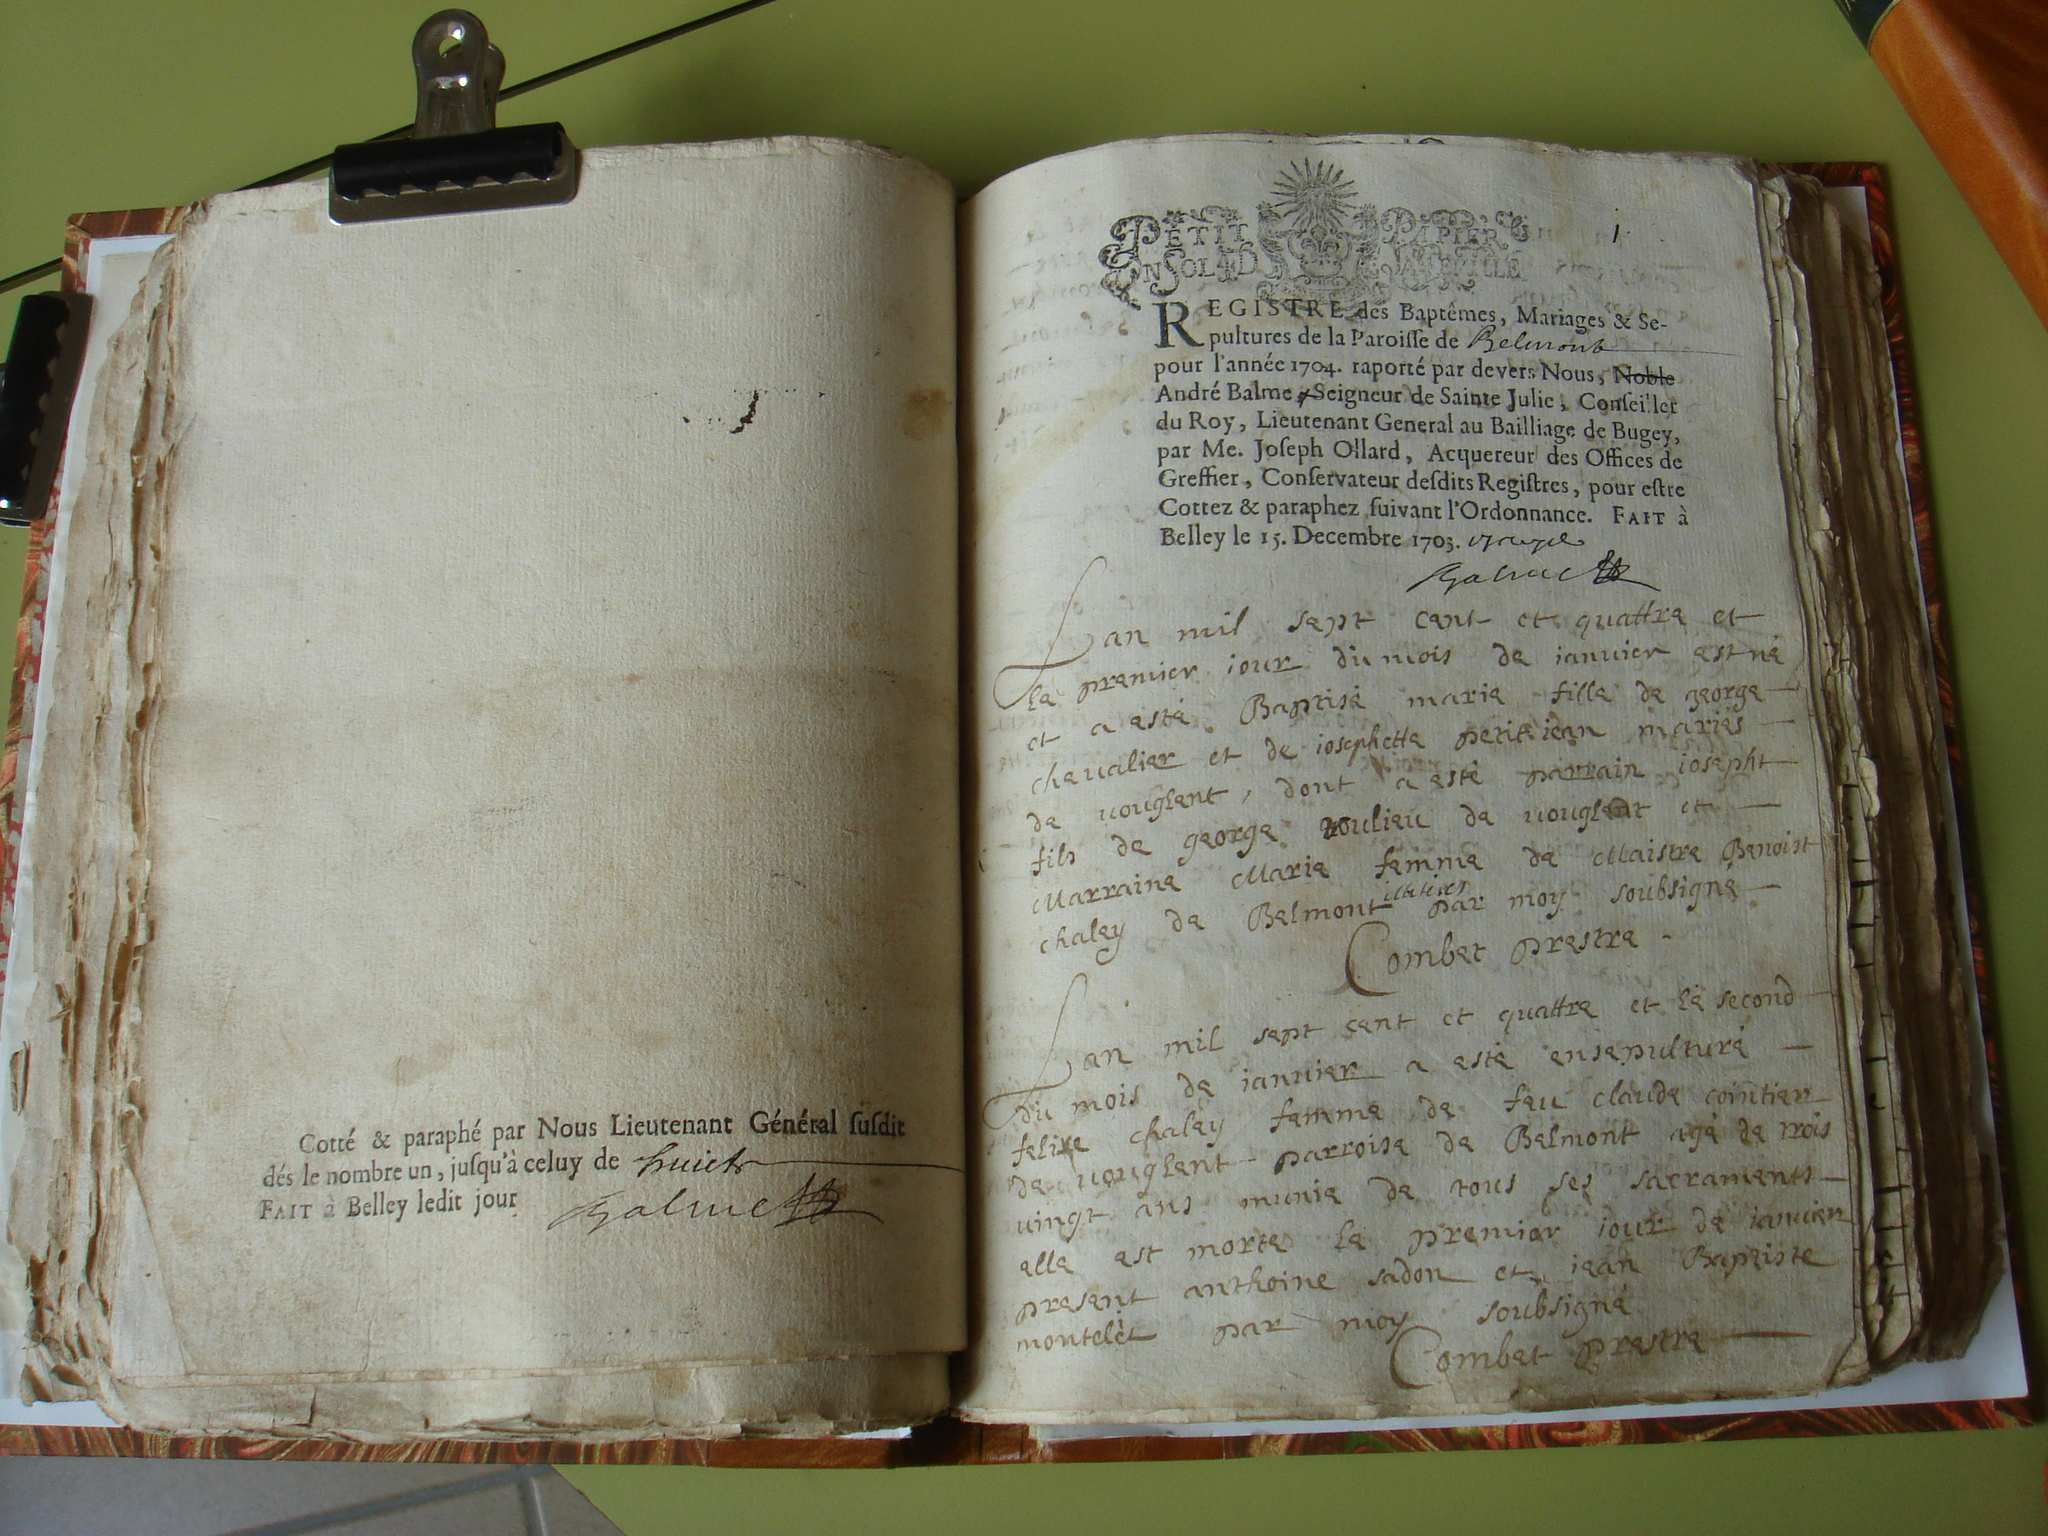 Cotté & paraphé par Nous Lieutenant Général susdit
dés le nombre un, jusqu'à celuy de huict
FAIT à Belley ledit jour
Balme
PETIT PAPIER
UN SOL 4 D LA FEUILLE
1
REGISTRE des Baptêmes, Mariages & Se-
pultures de la Paroisse de Belmont
pour l'année 1704. raporté par devers Nous, Noble
André Balme, Seigneur de Sainte Julie, Conseiller
du Roy, Lieutenant General au Bailliage de Bugey,
par Me. Joseph Ollard, Acquereur des Offices de
Greffier, Conservateur desdits Registres, pour estre
Cottez & paraphez suivant l'Ordonnance. FAIT à
Belley le 15. Decembre 1703.
Balme
Lan mil sept cent et quattre et
le premier iour du mois de ianvier est né
et a esté Baptisé marie fille de george
chevalier et de iosephette petit iean mariés
de vouglent, dont a esté parrain iosepht
fils de george roulieu de vouglent et
Marraine Marie femme de Maistre Benoist
chaley de Belmont par moy soubsigné
Combet prestre
Lan mil sept cent et quattre et le second
du mois de ianvier a esté ensepulturé
felixe chaley femme de feu claude cointier
de vouglent parroise de Belmont agé de trois
vingt ans munie de tous ses sacraments
elle est morte le premier iour de ianvier
present anthoine sadon et iean Baptiste
montelet par moy soubsigné
Combet prestre